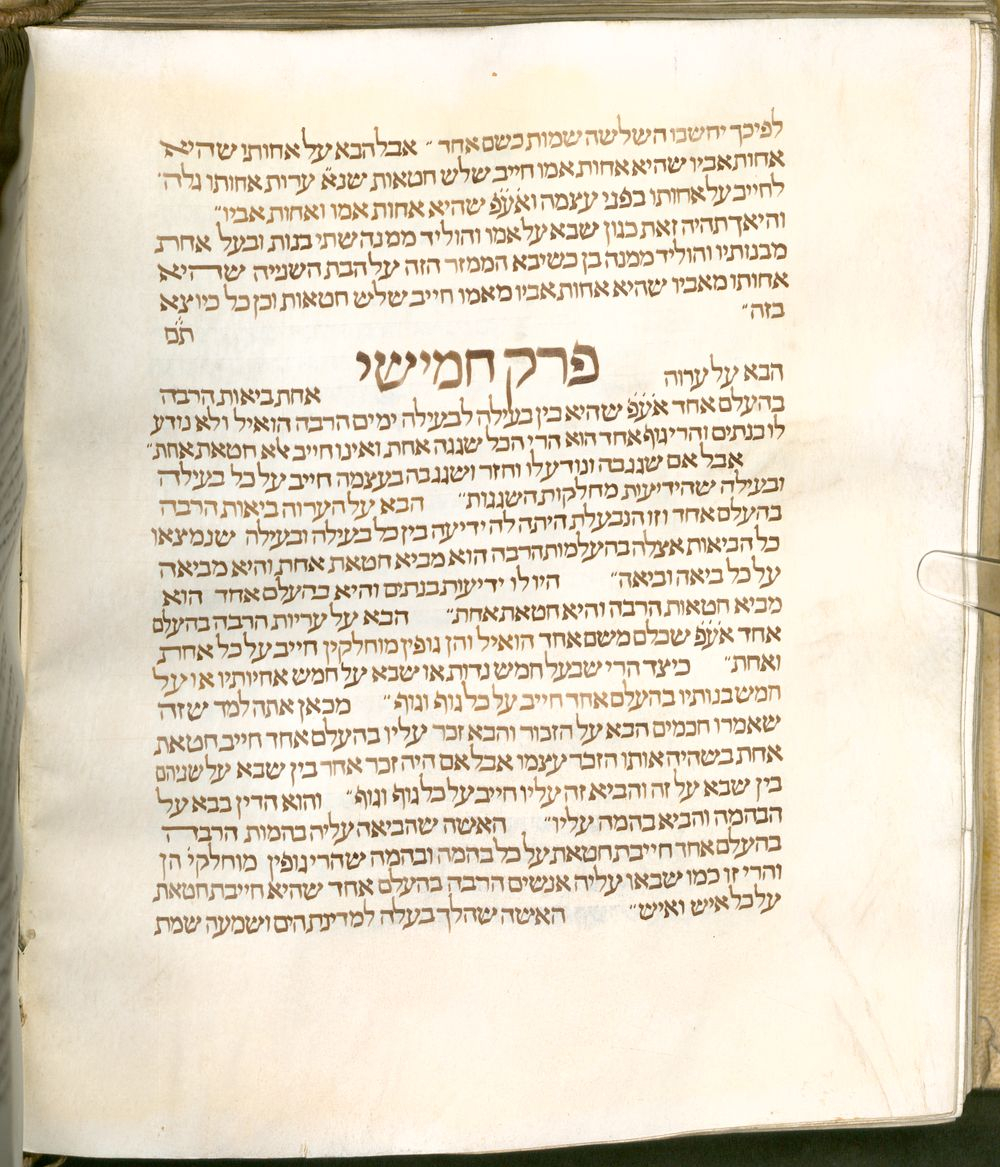 לפיכך יחשבו השלשה שמות כשם אחד ״ אבל הבא על אחותו שהיא
אחות אביו שהיא אחות אמו חייב שלש חטאות שנא׳ ערות אחותו גלה
לחייב על אחותו בפני עצמה ואע״פ שהיא אחות אמו ואחות אביו״
והיאך תהיה זאת כגון שבא על אמו והוליד ממנה שתי בנות ובעל אחת
מבנותיו והוליד ממנה בן כשיבא הממזר הזה על הבת השנייה שהיא
אחותו מאביו שהיא אחות אביו מאמו חייב שלש חטאות וכן כל כיוצא
בזה״
תם
פרק חמישי
הבא על ערוה אחת ביאות הרבה
בהעלם אחד אע״פ שהיא בין בעילה לבעילה ימים הרבה הואיל ולא נודע
לו בנתים והרי גוף אחד הוא הרי הכל שגגה אחת ואינו חייב אלא חטאת אחת״
אבל אם שגג בה ונודע לו וחזר ושגג בה בעצמה חייב על כל בעילה
ובעילה שהידיעות מחלקות השגגות״ הבא על הערוה ביאות הרבה
בהעלם אחד וזו הנבעלת היתה לה ידיעה בין כל בעילה ובעילה שנמצאו
כל הביאות אצלה בהעלמות הרבה הוא מביא חטאת אחת והיא מביאה
על כל ביאה וביאה״ היו לו ידיעות בנתים והיא בהעלם אחד הוא
מביא חטאות הרבה והיא חטאת אחת״ הבא על עריות הרבה בהעלם
אחד אע״פ שכלם משם אחד הואיל והן גופין מוחלקין חייב על כל אחת
ואחת״ כיצד הרי שבעל חמש נדות או שבא על חמש אחיותיו או על
חמש בנותיו בהעלם אחד חייב על כל גוף וגוף״ מכאן אתה למד שזה
שאמרו חכמים הבא על הזכור והבא זכר עליו בהעלם אחד חייב חטאת
אחת בשהיה אותו הזכר עצמו אבל אם היה זכר אחר בין שבא על שניהם
בין שבא על זה והביא זה עליו חייב על כל גוף וגוף״ והוא הדין בבא על
הבהמה והביא בהמה עליו״ האשה שהביאה עליה בהמות הרבה
בהעלם אחד חייבת חטאת על כל בהמה ובהמה שהרי גופין מוחלקי׳ הן
והרי זו כמו שבאו עליה אנשים הרבה בהעלם אחד שהיא חייבת חטאת
על כל איש ואיש״ האשה שהלך בעלה למדינת הים ושמעה שמת